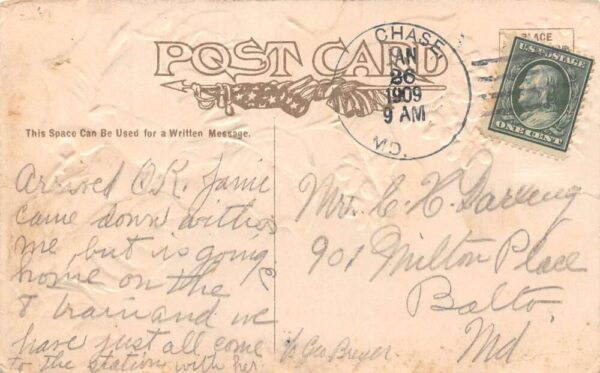 POST CARD
CHASE,
JAN
26
1909
9 AM
MD.
PLACE
U.S. POSTAGE
ONE CENT
This Space Can Be Used for a Written Message.
Arrived O.K. Janie
came down with
me, but is going
home on the
8 train and we
have just all come
to the station with her.
Mr. C. H. Darling
901 Milton Place
Balto.
Md.
c/o Geo Breyer